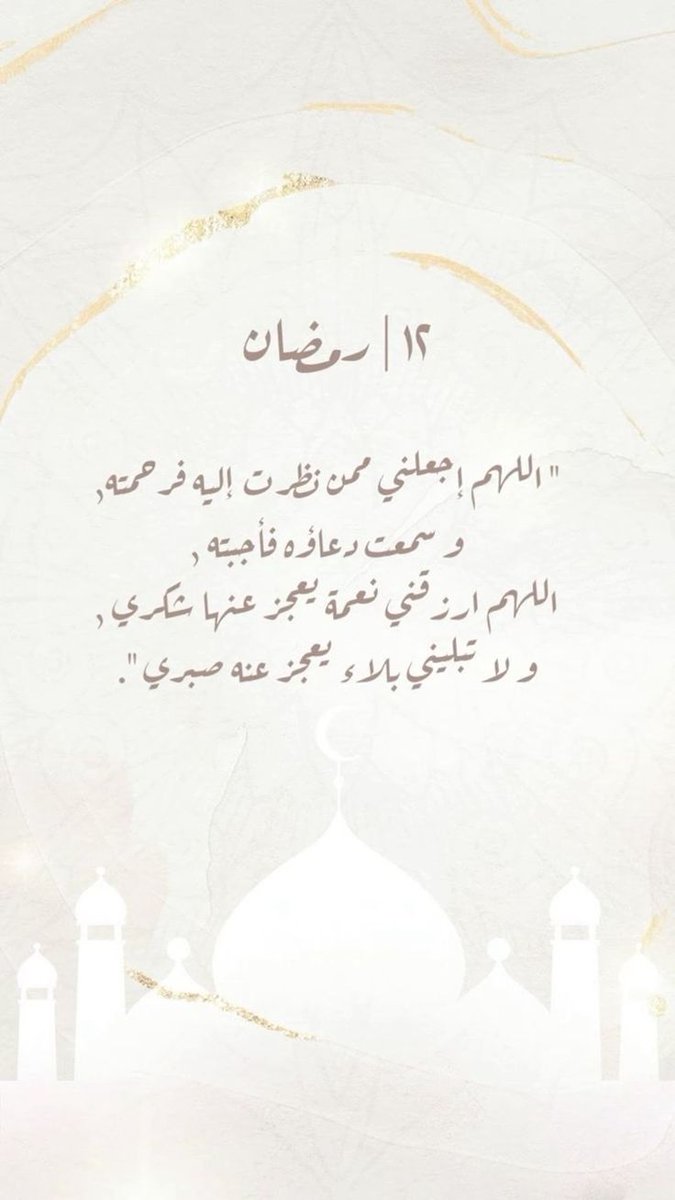 ١٢ | رمضان
"اللهم إجعلني ممن نظرت إليه فرحمته,
و سمعت دعاؤه فأجبته ,
اللهم ارزقني نعمة يعجز عنها شكري ,
و لا تبليني بلاء يعجز عنه صبري".